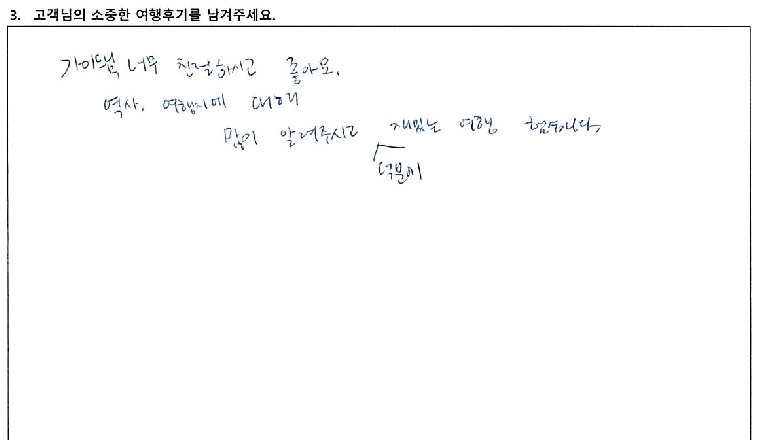 3. 고객님의 소중한 여행후기를 남겨주세요.
가이드님 너무 친절하시고 좋아요.
역사, 여행지에 대해
많이 알려주시고 재밌는 여행 했습니다.
덕분에